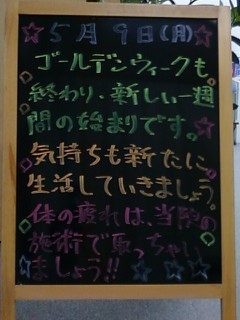 5月9日(月)
ゴールデンウィークも
終わり、新しい一週
間の始まりです。
気持ちも新たに
生活していきましょう。
体の疲れは、当院の
施術で取っちゃい
ましょう!!